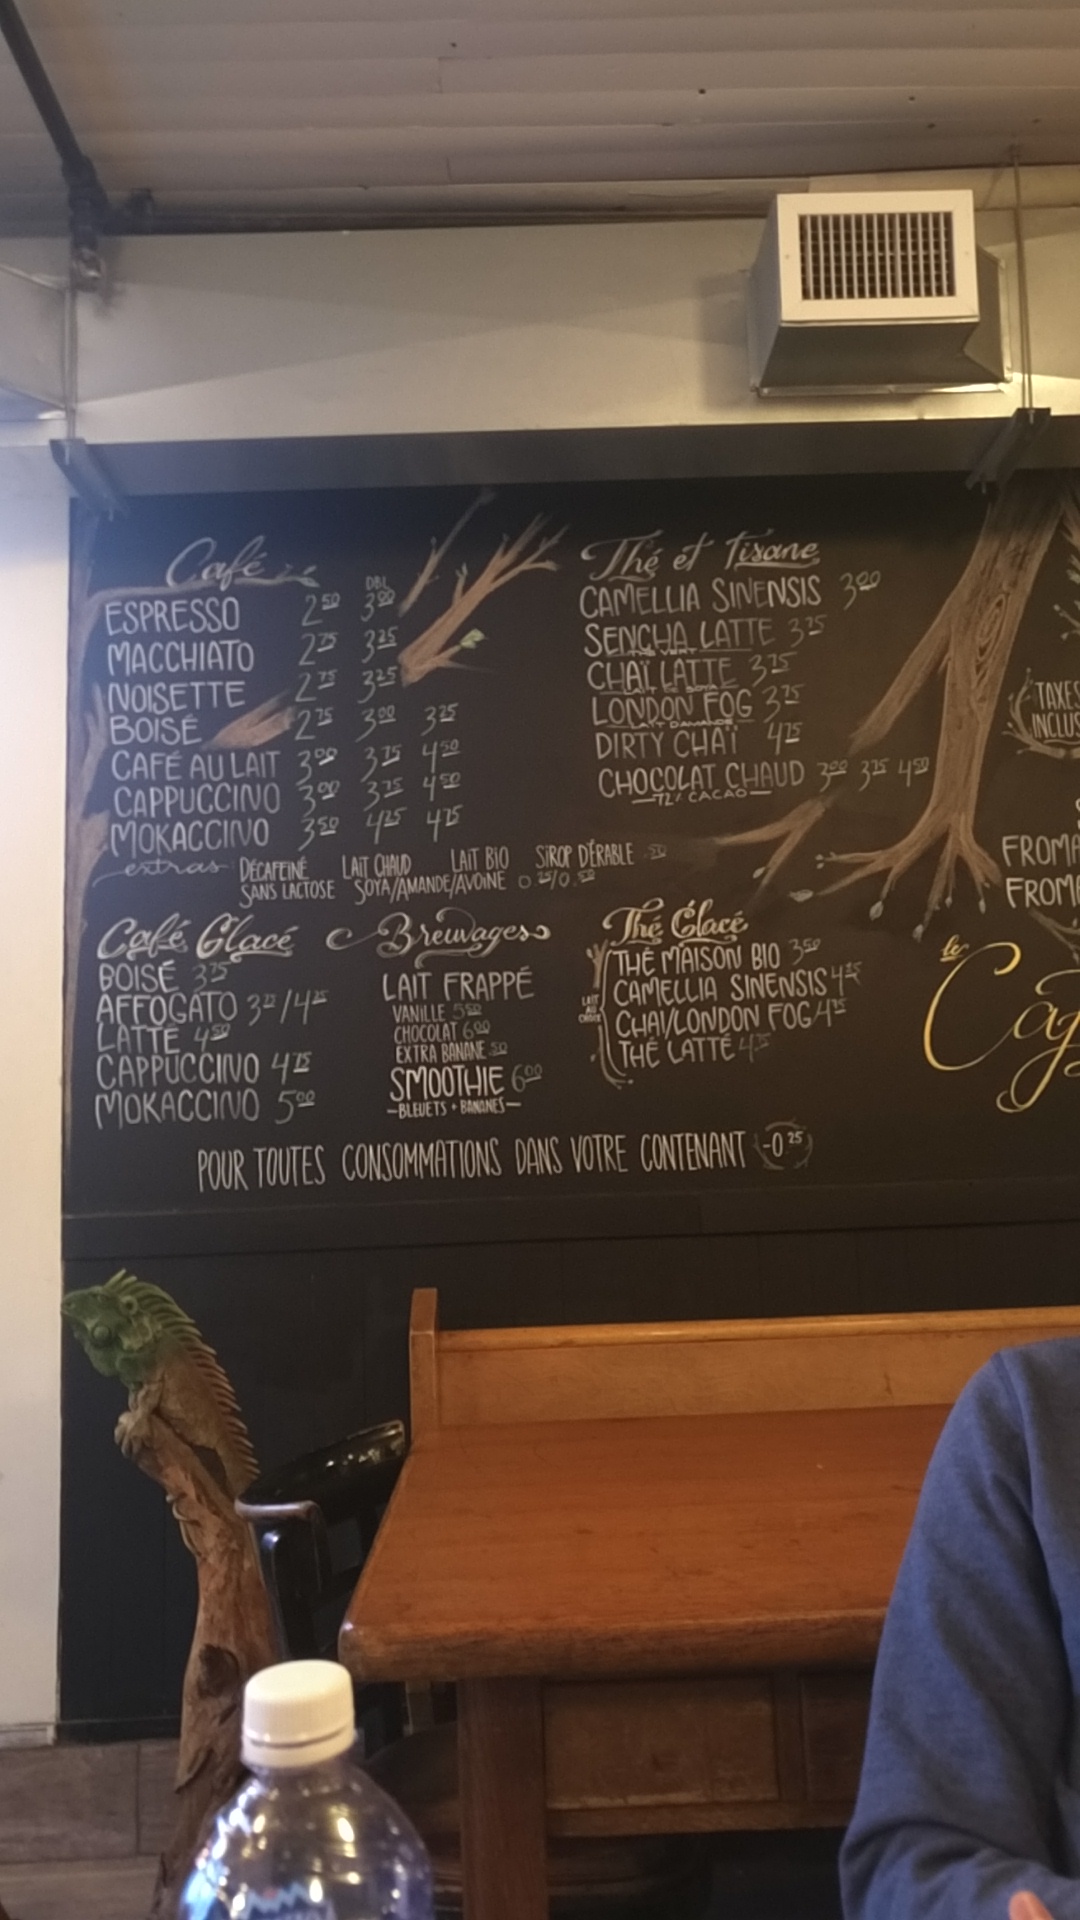 Café
DBL
ESPRESSO 2.50 3.00
MACCHIATO 2.75 3.25
NOISETTE 2.75 3.25
BOISÉ 2.75 3.00 3.25
CAFÉ AU LAIT 3.00 3.75 4.50
CAPPUCCINO 3.00 3.75 4.50
MOKACCINO 3.50 4.25 4.75
extras DÉCAFEINÉ LAIT CHAUD LAIT BIO SIROP D'ÉRABLE .50
SANS LACTOSE SOYA/AMANDE/AVOINE 0.25/0.50
Thé et tisane
CAMELLIA SINENSIS 3.00
SENCHA LATTE 3.75
CHAÏ LATTE 3.75
LONDON FOG 3.75
DIRTY CHAÏ 4.75
CHOCOLAT CHAUD 3.00 3.75 4.50
72% CACAO
Café Glacé
BOISÉ 3.75
AFFOGATO 3.75/4.25
LATTÉ 4.50
CAPPUCCINO 4.75
MOKACCINO 5.00
Breuvages
LAIT FRAPPÉ
VANILLE 5.50
CHOCOLAT 6.00
EXTRA BANANE .50
SMOOTHIE 6.00
BLEUETS + BANANES
Thé Glacé
LAIT AU CHOIX
THÉ MAISON BIO 3.50
CAMELLIA SINENSIS 4.25
CHAI/LONDON FOG 4.75
THÉ LATTÉ 4.75
POUR TOUTES CONSOMMATIONS DANS VOTRE CONTENANT -0.25
TAXES
INCLUS
FROMA
FROMA
le
Cag